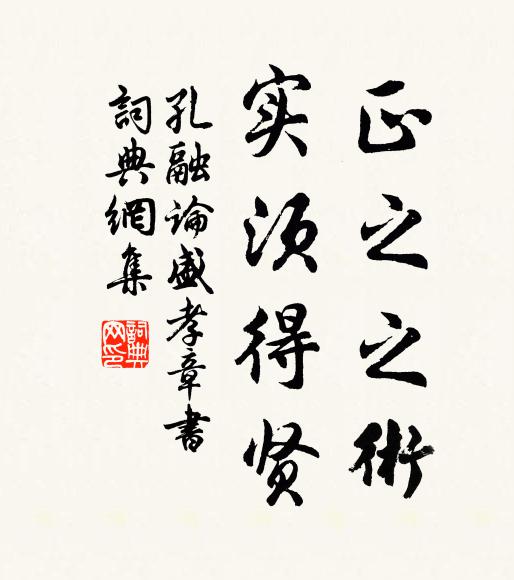 正之之術
实须得贤
孔融论盛孝章書
詞典網集
詞典网印